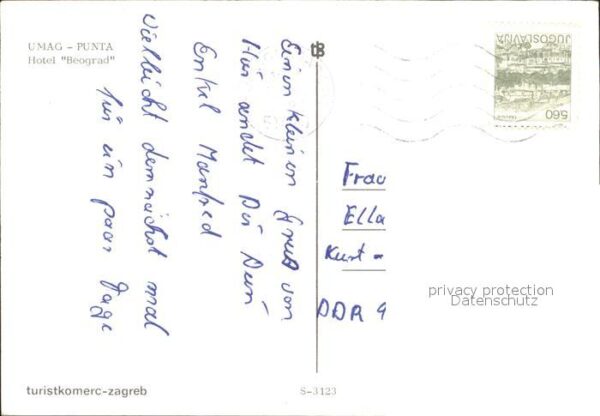 UMAG - PUNTA
Hotel "Beograd"
tB
Einen kleinen Gruß von
Hier sendet Dir Dein
Enkel Manfred
Vielleicht demnächst mal
für ein paar Tage
JUGOSLAVIJA
560
Frau
Ella
Kurt-
DDR 9
privacy protection
Datenschutz
turistkomerc-zagreb
S-3123